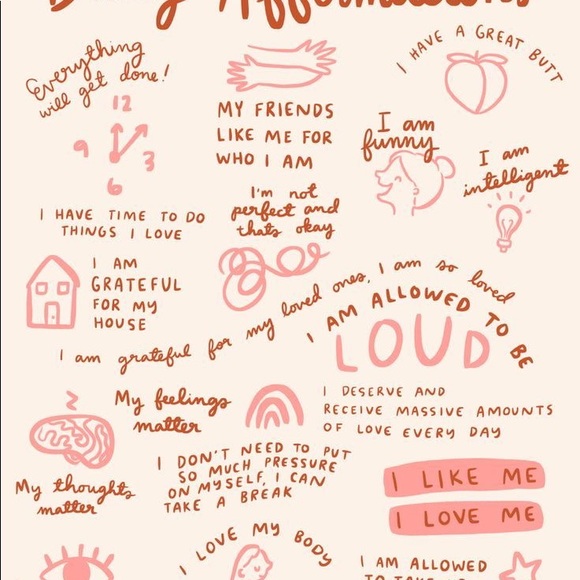 Affirmations
Everything
will get done!
12
9
3
6
MY FRIENDS
LIKE ME FOR
WHO I AM
I HAVE A GREAT BUTT
I am
funny
I am
intelligent
I HAVE TIME TO DO
THINGS I LOVE
I'm not
perfect and
thats okay
I AM
GRATEFUL
FOR MY
HOUSE
I am grateful for my loved ones, I am so loved
I AM ALLOWED TO BE
LOUD
My feelings
matter
I DESERVE AND
RECEIVE MASSIVE AMOUNTS
OF LOVE EVERY DAY
My thoughts
matter
I DON'T NEED TO PUT
SO MUCH PRESSURE
ON MYSELF, I CAN
TAKE A BREAK
I LIKE ME
I LOVE ME
I LOVE MY BODY
I AM ALLOWED